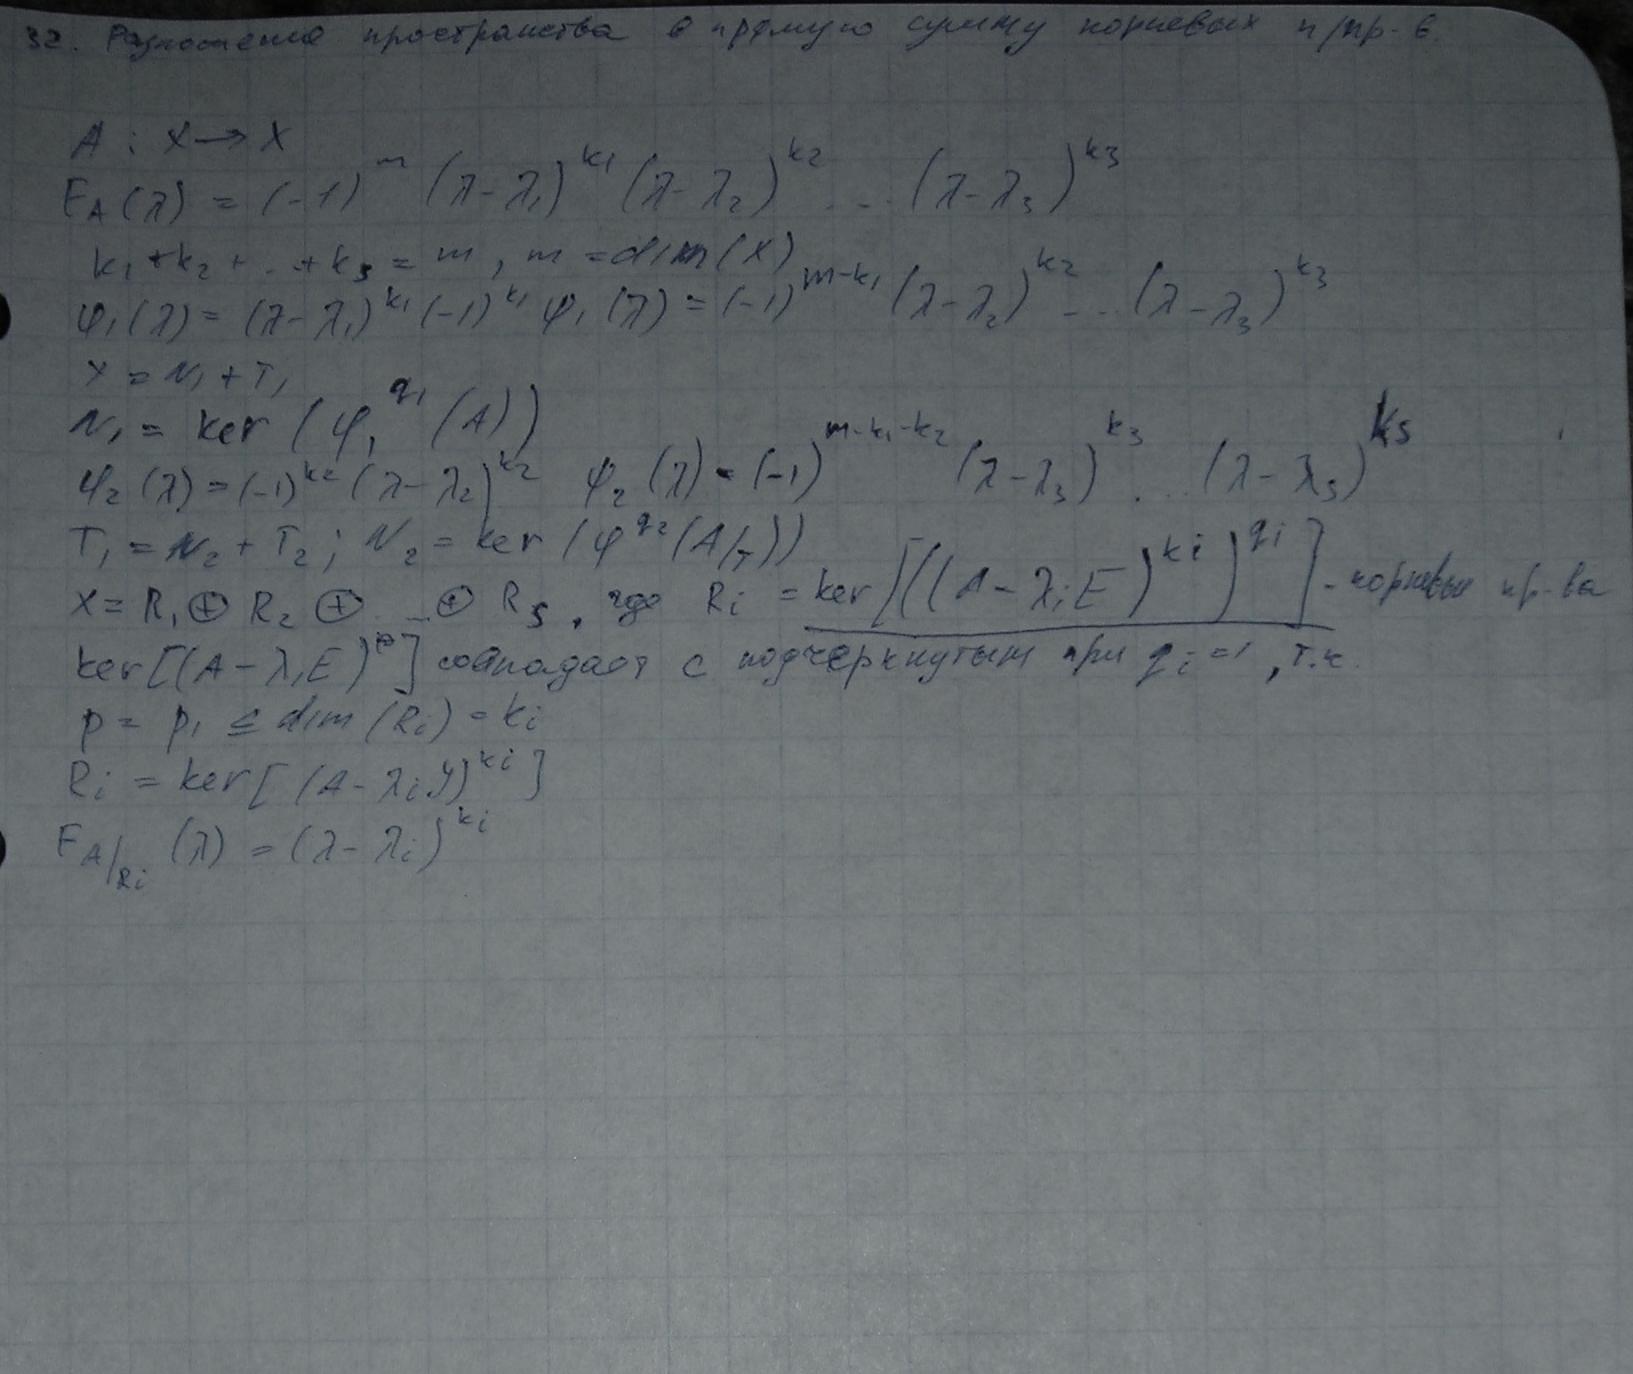 32. Разложение пространства в прямую сумму корневых п/пр-в.
A : X → X
F_A(λ) = (-1)^m (λ-λ₁)^k₁ (λ-λ₂)^k₂ ... (λ-λ₃)^k₃
k₁+k₂+...+k_s = m, m = dim(X)
φ₁(λ) = (λ-λ₁)^k₁ (-1)^k₁ ψ₁(λ) = (-1)^{m-k₁} (λ-λ₂)^k₂ ... (λ-λ₃)^k₃
X = N₁ + T₁
N₁ = ker (φ₁^q₁ (A))
φ₂(λ) = (-1)^k₂ (λ-λ₂)^k₂ ψ₂(λ) = (-1)^{m-k₁-k₂} (λ-λ₃)^k₃ ... (λ-λ_s)^k_s
T₁ = N₂ + T₂; N₂ = ker (φ^q₂ (A/_T))
X = R₁ ⊕ R₂ ⊕ ... ⊕ R_s, где R_i = ker[((A-λ_iE)^k_i)^q_i] - корневые пр-ва
ker[(A-λ_iE)^p] совпадает с подчеркнутым при q_i=1, т.к.
p = p₁ ≤ dim(R_i) = k_i
R_i = ker[(A-λ_iЧ)^k_i]
F_{A/R_i} (λ) = (λ-λ_i)^k_i